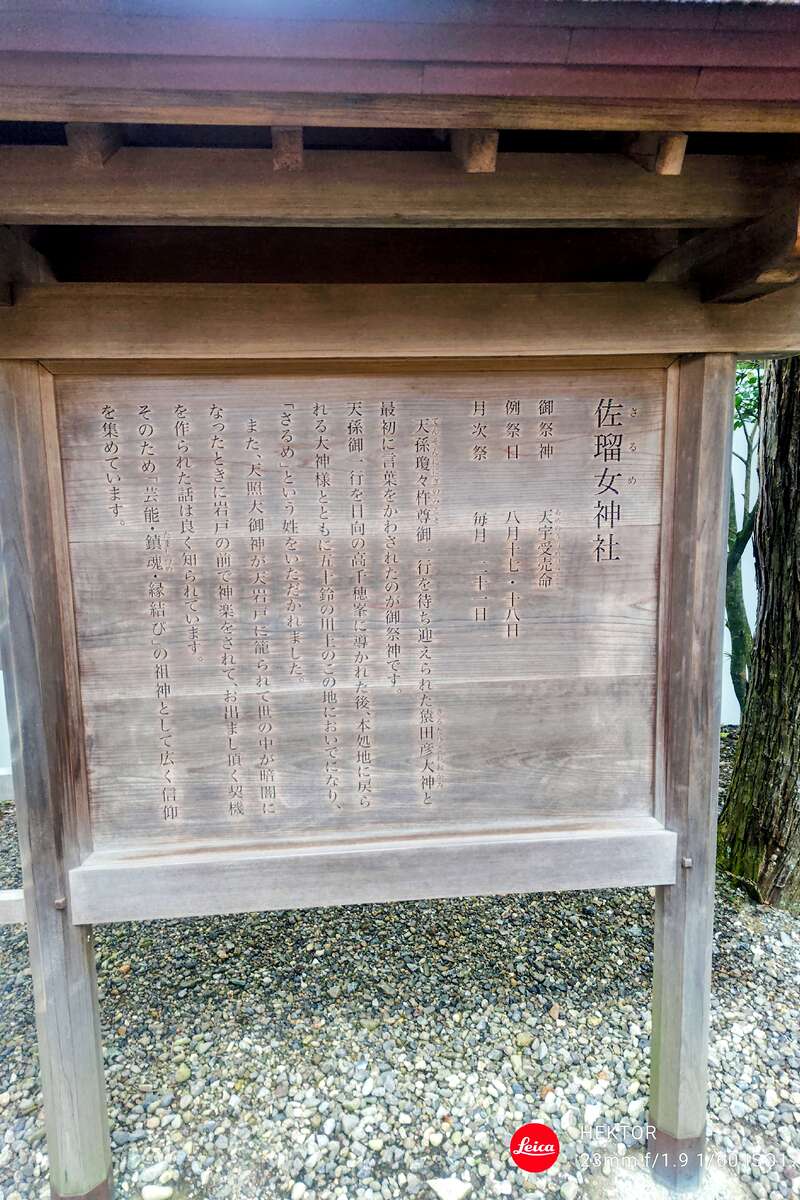 佐瑠女神社
さるめ
御祭神 天宇受売命
例祭日 八月十七・十八日
月次祭 毎月 二十一日
天孫瓊々杵尊御一行を待ち迎えられた猿田彦大神と
最初に言葉をかわされたのが御祭神です。
天孫御一行を日向の高千穂峯に導かれた後、本処地に戻ら
れる大神様とともに五十鈴の川上のこの地においでになり、
「さるめ」という姓をいただかれました。
また、天照大御神が天岩戸に籠られて世の中が暗闇に
なったときに岩戸の前で神楽をされて、お出まし頂く契機
を作られた話は良く知られています。
そのため「芸能・鎮魂・縁結び」の祖神として広く信仰
を集めています。
Leica
HEKTOR
23mm f/1.9 1/60